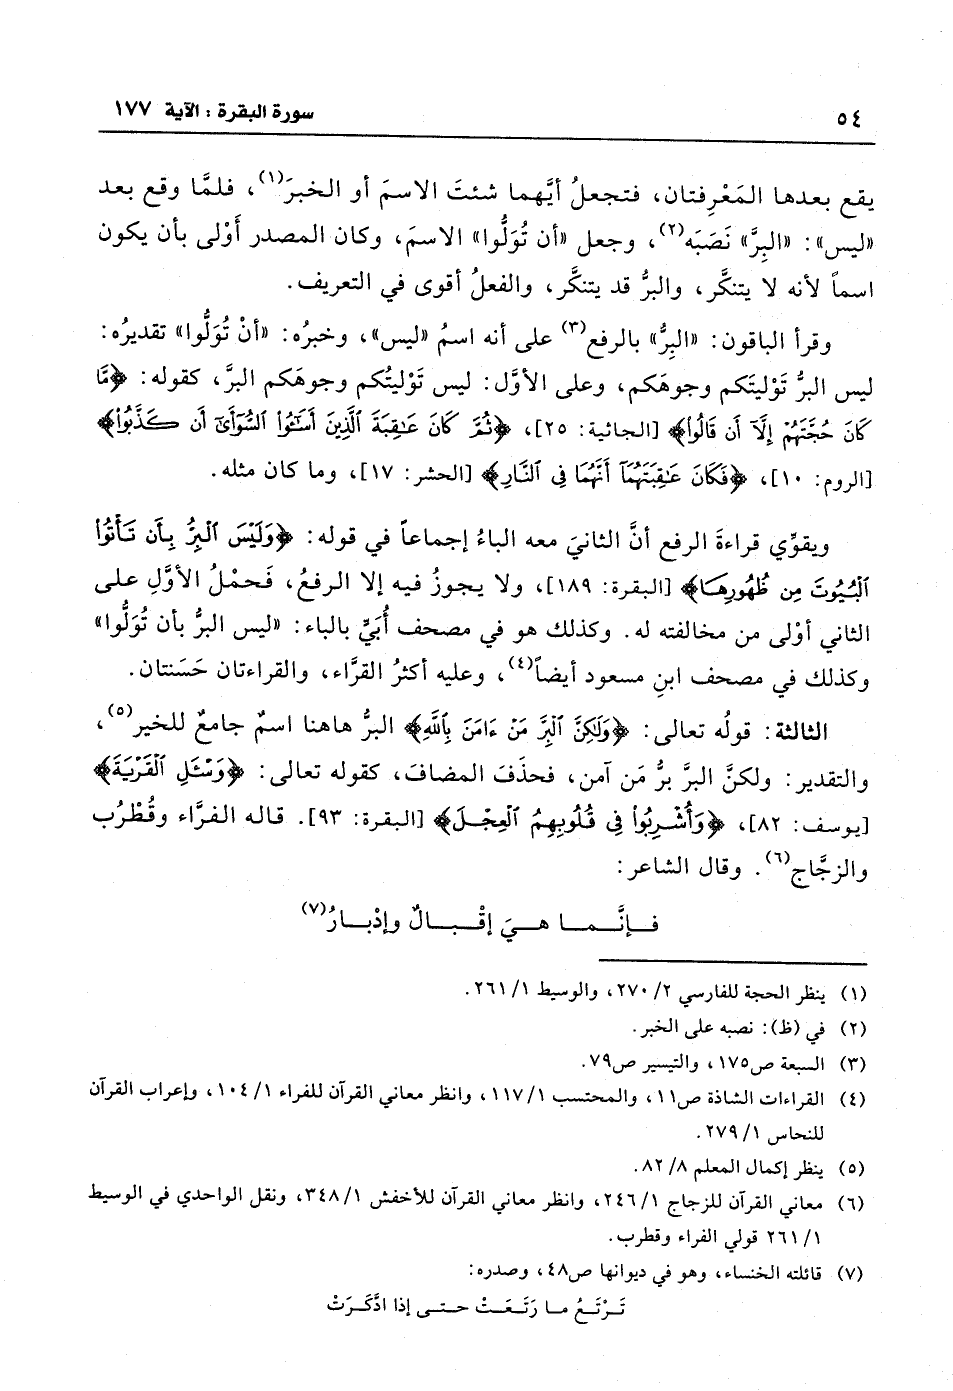 ٥٤
سورة البقرة : الآية ١٧٧
يقع بعدها المَعْرِفتان، فتجعلُ أيَّهما شئتَ الاسمَ أو الخبرَ(١)، فلمَّا وقع بعد
«ليس»: «البِرَّ» نَصَبَه(٢)، وجعل «أن تُوَلُّوا» الاسمَ، وكان المصدر أَوْلى بأن يكون
اسماً لأنه لا يتنكَّر، والبرُّ قد يتنكَّر، والفعلُ أقوى في التعريف.
وقرأ الباقون: «البِرُّ» بالرفع(٣) على أنه اسمُ «ليس»، وخبرُه: «أنْ تُوَلُّوا» تقديرُه:
ليس البرُّ تَوْليتَكم وجوهَكم، وعلى الأوَّل: ليس تَوْليتُكم وجوهَكم البرَّ، كقوله: ﴿مَّا
كَانَ حُجَّتَهُمْ إِلَّآ أَن قَالُوا۟﴾ [الجاثية: ٢٥]، ﴿ثُمَّ كَانَ عَٰقِبَةَ ٱلَّذِينَ أَسَٰٓـُٔوا۟ ٱلسُّوٓأَىٰٓ أَن كَذَّبُوا۟﴾
[الروم: ١٠]، ﴿فَكَانَ عَٰقِبَتَهُمَآ أَنَّهُمَا فِى ٱلنَّارِ﴾ [الحشر: ١٧]، وما كان مثله.
ويقوِّي قراءةَ الرفع أنَّ الثانيَ معه الباءُ إجماعاً في قوله: ﴿وَلَيْسَ ٱلْبِرُّ بِأَن تَأْتُوا۟
ٱلْبُيُوتَ مِن ظُهُورِهَا﴾ [البقرة: ١٨٩]، ولا يجوزُ فيه إلا الرفعُ، فَحمْلُ الأوَّلِ على
الثاني أوْلى من مخالفته له. وكذلك هو في مصحف أُبَيٍّ بالباء: «ليس البرُّ بأن تُوَلُّوا»
وكذلك في مصحف ابنِ مسعود أيضاً(٤)، وعليه أكثرُ القرَّاء، والقراءتان حَسَنتان.
الثالثة: قولُه تعالى: ﴿وَلَٰكِنَّ ٱلْبِرَّ مَنْ ءَامَنَ بِٱللَّهِ﴾ البرُّ هاهنا اسمٌ جامعٌ للخير(٥)،
والتقدير: ولكنَّ البرَّ بِرُّ مَن آمن، فحذَف المضاف، كقوله تعالى: ﴿وَسْـَٔلِ ٱلْقَرْيَةَ﴾
[يوسف: ٨٢]، ﴿وَأُشْرِبُوا۟ فِى قُلُوبِهِمُ ٱلْعِجْلَ﴾ [البقرة: ٩٣]. قاله الفرَّاء وقُطْرُب
والزجَّاج(٦). وقال الشاعر:
فـإنَّـمـا هـيَ إقْـبـالٌ وإدْبـارُ(٧)
(١) ينظر الحجة للفارسي ٢/ ٢٧٠، والوسيط ١/ ٢٦١.
(٢) في (ظ): نصبه على الخبر.
(٣) السبعة ص١٧٥، والتيسير ص٧٩.
(٤) القراءات الشاذة ص١١، والمحتسب ١/ ١١٧، وانظر معاني القرآن للفراء ١/ ١٠٤، وإعراب القرآن
للنحاس ١/ ٢٧٩.
(٥) ينظر إكمال المعلم ٨/ ٨٢.
(٦) معاني القرآن للزجاج ١/ ٢٤٦، وانظر معاني القرآن للأخفش ١/ ٣٤٨، ونقل الواحدي في الوسيط
١/ ٢٦١ قولي الفراء وقطرب.
(٧) قائلته الخنساء، وهو في ديوانها ص٤٨، وصدره:
تَـرْتَـعُ مـا رَتَـعَـتْ حـتـى إذا ادَّكَـرَتْ